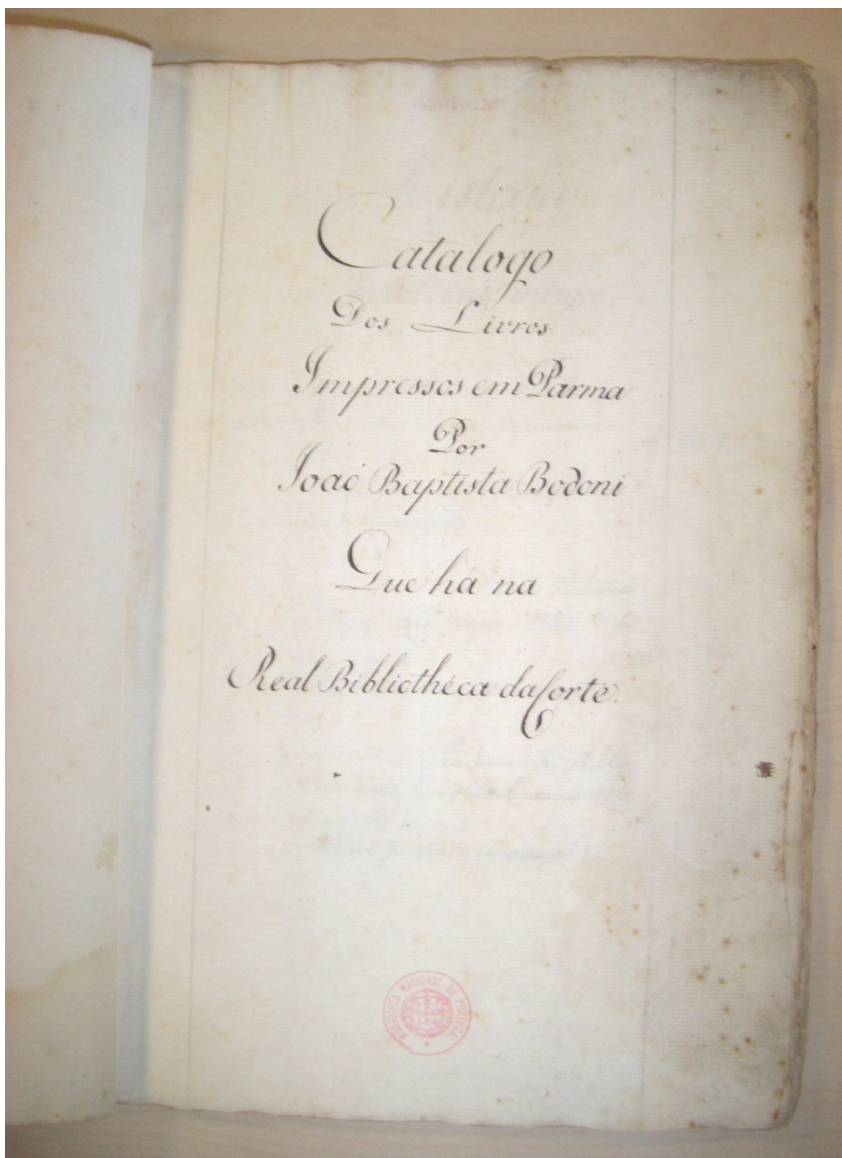 Catalogo
Dos Livros
Impressos em Parma
Por
Joaõ Baptista Bodoni
Que ha na
Real Bibliothéca da Corte.
BIBLIOTECA NACIONAL DE PORTUGAL